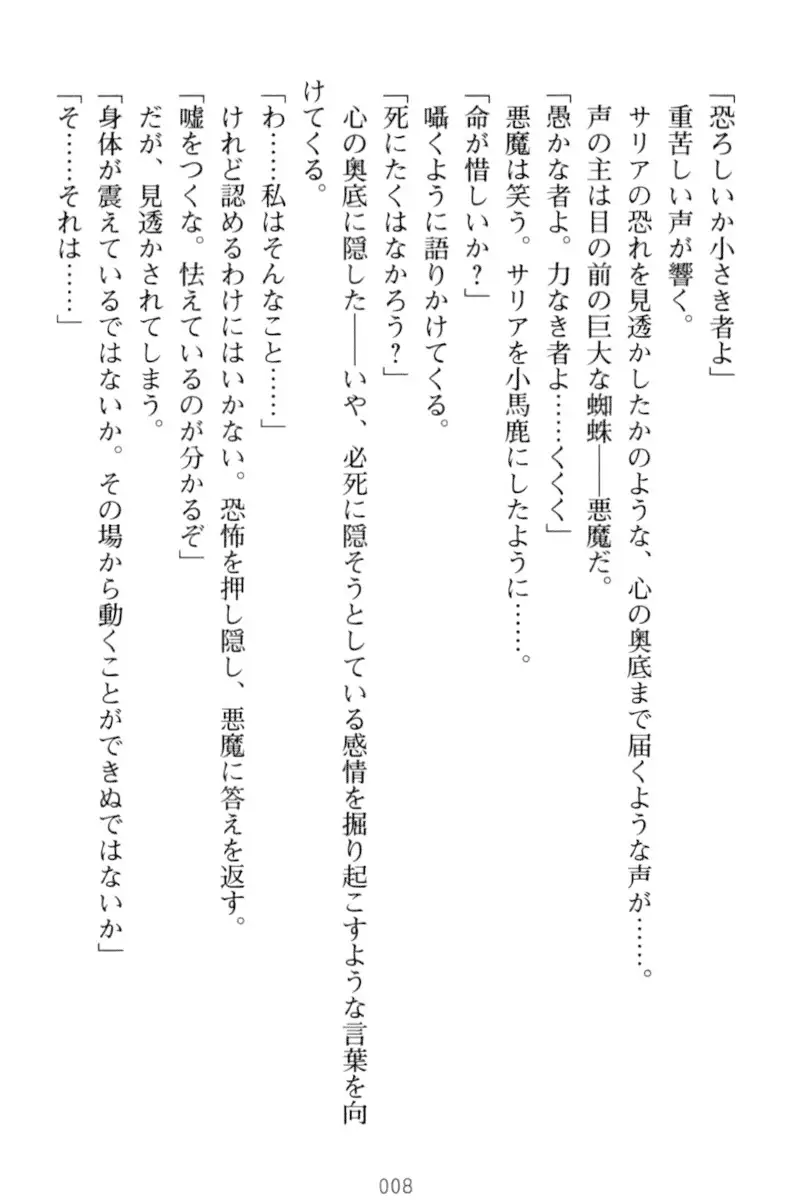 「恐ろしいか小さき者よ」
重苦しい声が響く。
サリアの恐れを見透かしたかのような、心の奥底まで届くような声が……。
声の主は目の前の巨大な蜘蛛――悪魔だ。
「愚かな者よ。力なき者よ……くくく」
悪魔は笑う。サリアを小馬鹿にしたように……。
「命が惜しいか？」
囁くように語りかけてくる。
「死にたくはなかろう？」
心の奥底に隠した――いや、必死に隠そうとしている感情を掘り起こすような言葉を向
けてくる。
「わ……私はそんなこと……」
けれど認めるわけにはいかない。恐怖を押し隠し、悪魔に答えを返す。
「嘘をつくな。怯えているのが分かるぞ」
だが、見透かされてしまう。
「身体が震えているではないか。その場から動くことができぬではないか」
「そ……それは……」
008